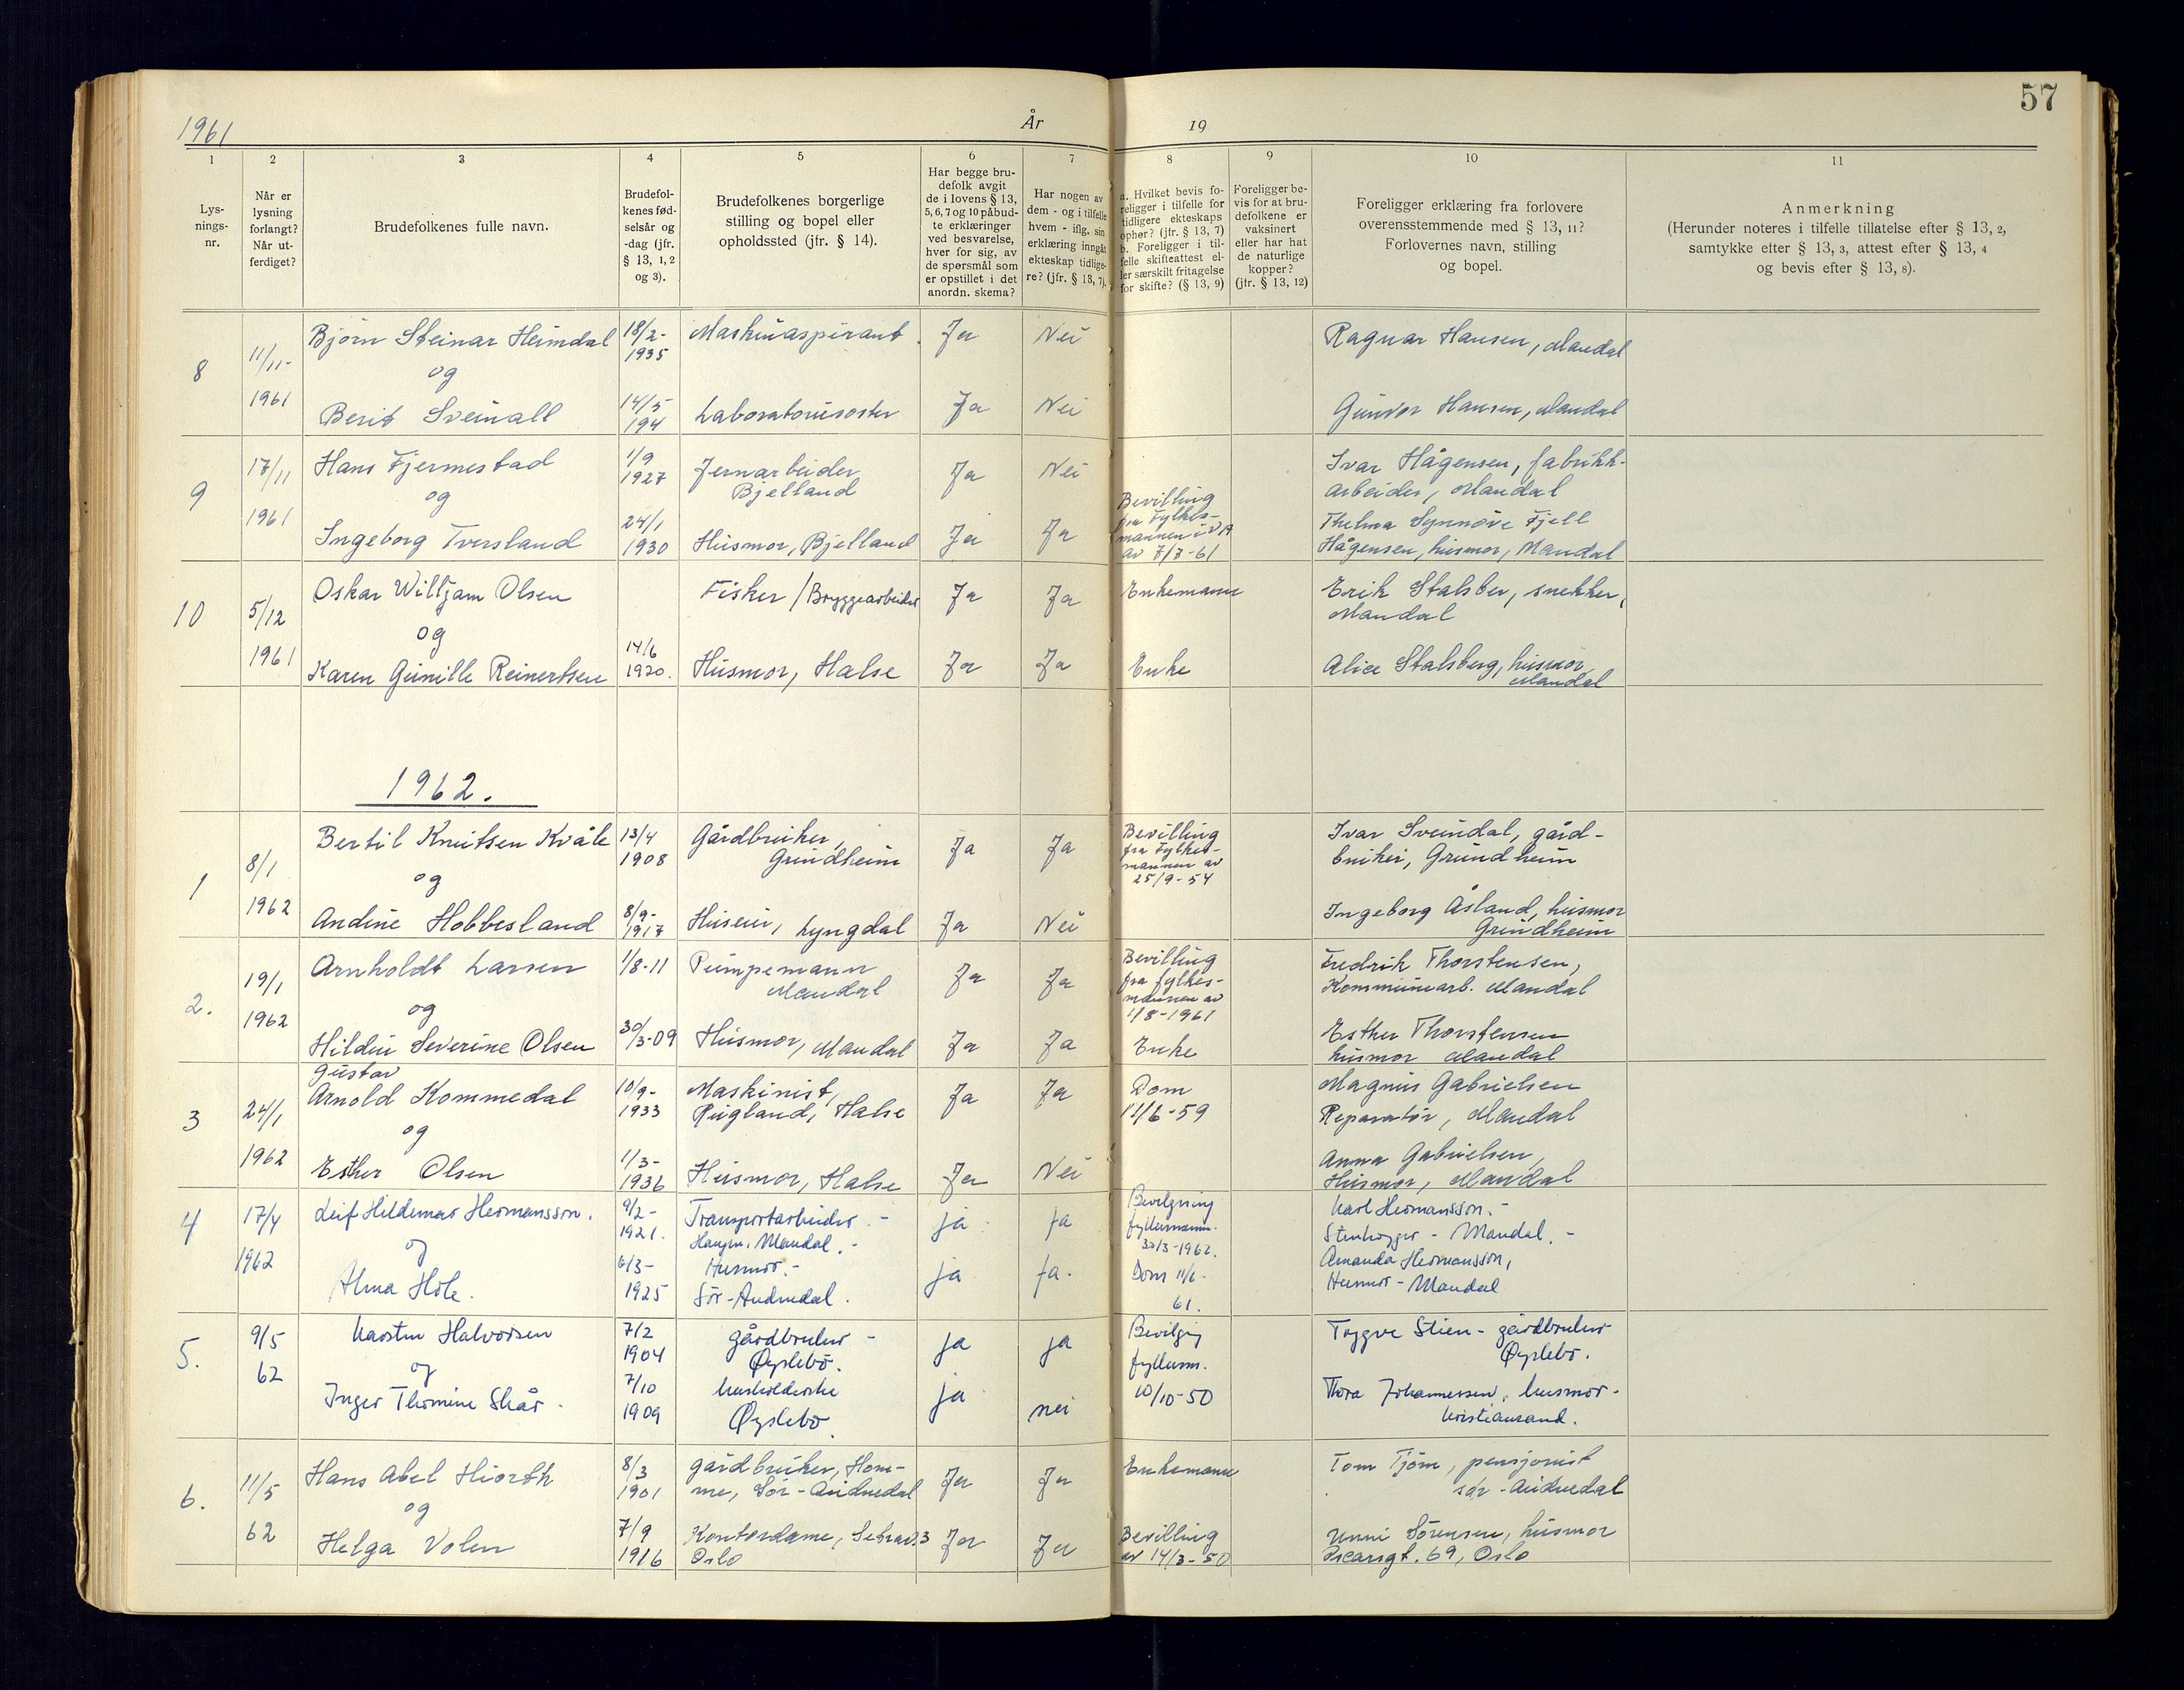 57
1961 År 19
1 2 3 4 5 6 7 8 9 10 11
Lys-
nings-
nr.
Når er
lysning
forlangt?
Når ut-
ferdiget?
Brudefolkenes fulle navn.
Brudefol-
kenes fød-
selsår og
-dag (jfr.
§ 13, 1, 2
og 3).
Brudefolkenes borgerlige
stilling og bopel eller
opholdssted (jfr. § 14).
Har begge bru-
defolk avgit
de i lovens § 13,
5, 6, 7 og 10 påbud-
te erklæringer
ved besvarelse,
hver for sig, av
de spørsmål som
er opstillet i det
anordn. skema?
Har nogen av
dem - og i tilfelle
hvem - iflg. sin
erklæring inngåt
ekteskap tidlige-
re? (jfr. § 13, 7).
a. Hvilket bevis fo-
religger i tilfelle for
tidligere ekteskaps
ophør? (jfr. § 13, 7)
b. Foreligger i til-
felle skifteattest el-
ler særskilt fritagelse
for skifte? (§ 13, 9)
Foreligger be-
vis for at bru-
defolkene er
vaksinert
eller har hat
de naturlige
kopper?
(jfr. § 13, 12)
Foreligger erklæring fra forlovere
overensstemmende med § 13, 11?
Forlovernes navn, stilling
og bopel.
Anmerkning
(Herunder noteres i tilfelle tillatelse efter § 13, 2,
samtykke efter § 13, 3, attest efter § 13, 4
og bevis efter § 13, 8).
8
11/11-
1961
Bjørn Steinar Heimdal
og
Berit Sveinall
18/2-
1935
14/5
194
Maskinaspirant
Laboratoriesøster
Ja
Ja
Nei
Nei
Ragnar Hansen, Mandal
Gunvor Hansen, Mandal
9
17/11
1961
Hans Fjermestad
og
Ingeborg Tversland
1/9
1927
24/1
1930
Jernarbeider
Bjelland
Husmor, Bjelland
Ja
Ja
Nei
Ja
Bevilling
fra Fylkes-
mannen i VA
av 7/7-61
Ivar Hågensen, fabrikk-
arbeider, Mandal
Thelma Synnøve Fjell
Hågensen, husmor, Mandal
10
5/12
1961
Oskar Willjam Olsen
og
Karen Gunille Reinertsen
14/6
1920.
Fisker / Bryggearbeider
Husmor, Halse
Ja
Ja
Ja
Ja
Enkemann
Enke
Erik Stalsber, snekker,
Mandal
Alice Stalsberg, husmor
Mandal
1962.
1
8/1
1962
Bertil Knutsen Kvåle
og
Andine Hobbesland
13/4
1908
8/9-
1917
Gårdbruker,
Grindheim
Huseier, Lyngdal
Ja
Ja
Ja
Nei
Bevilling
fra Fylkes-
mannen av
25/9-54
Ivar Sveindal, gård-
bruker, Grindheim
Ingeborg Åsland, husmor
Grindheim
2.
19/1
1962
Arnholdt Larsen
og
Hildur Severine Olsen
1/8-11
30/3-09
Pumpemann
Mandal
Husmor, Mandal
Ja
Ja
Ja
Ja
Bevilling
fra fylkes-
mannen av
1/8-1961
Enke
Fredrik Thorstensen,
Kommunearb. Mandal
Esther Thorstensen
husmor Mandal
3
24/1
1962
Gustav
Arnold Kommedal
og
Esther Olsen
10/9-
1933
1/3-
1936
Maskinist,
Rugland, Halse
Husmor, Halse
Ja
Ja
Ja
Nei
Dom
11/6-59
Magnus Gabrielsen
Reparatør, Mandal
Anna Gabrielsen,
Husmor, Mandal
4
17/4
1962
Leif Hildemar Hermansson.
og
Alma Hole.
9/2-
1921.
6/3-
1925
Transportarbeider. -
Mandal. -
Husmor. -
Sør-Audnedal.
ja
ja
ja
ja.
Bevilgning
fylkesmann.
30/3-1962.
Dom 11/6-
61.
Karl Hermansson. -
Stenhogger - Mandal. -
Amanda Hermansson,
Husmor - Mandal
5.
9/5
62
Karsten Halvorsen
og
Inger Thomine Skår.
7/2
1904
7/10
1909
gårdbruker -
Øyslebø.
husholderske
Øyslebø.
ja
ja
ja
nei
Bevilgning
fylkesm.
10/10-50
Trygve Stien - gårdbruker
Øyslebø.
Thora Johannessen, husmor -
Kristiansand.
6.
11/5
62
Hans Abel Hiorth
og
Helga Volen
8/3
1901
7/9
1916
gårdbruker, Hom-
me, Sør-Audnedal
Kontordame,
Oslo
Ja
Ja
Ja
Ja
Enkemann
Bevilling
av 14/3-50
Tom Tjøm, pensjonist
Sør-Audnedal
Unni Sørensen, husmor
69, Oslo